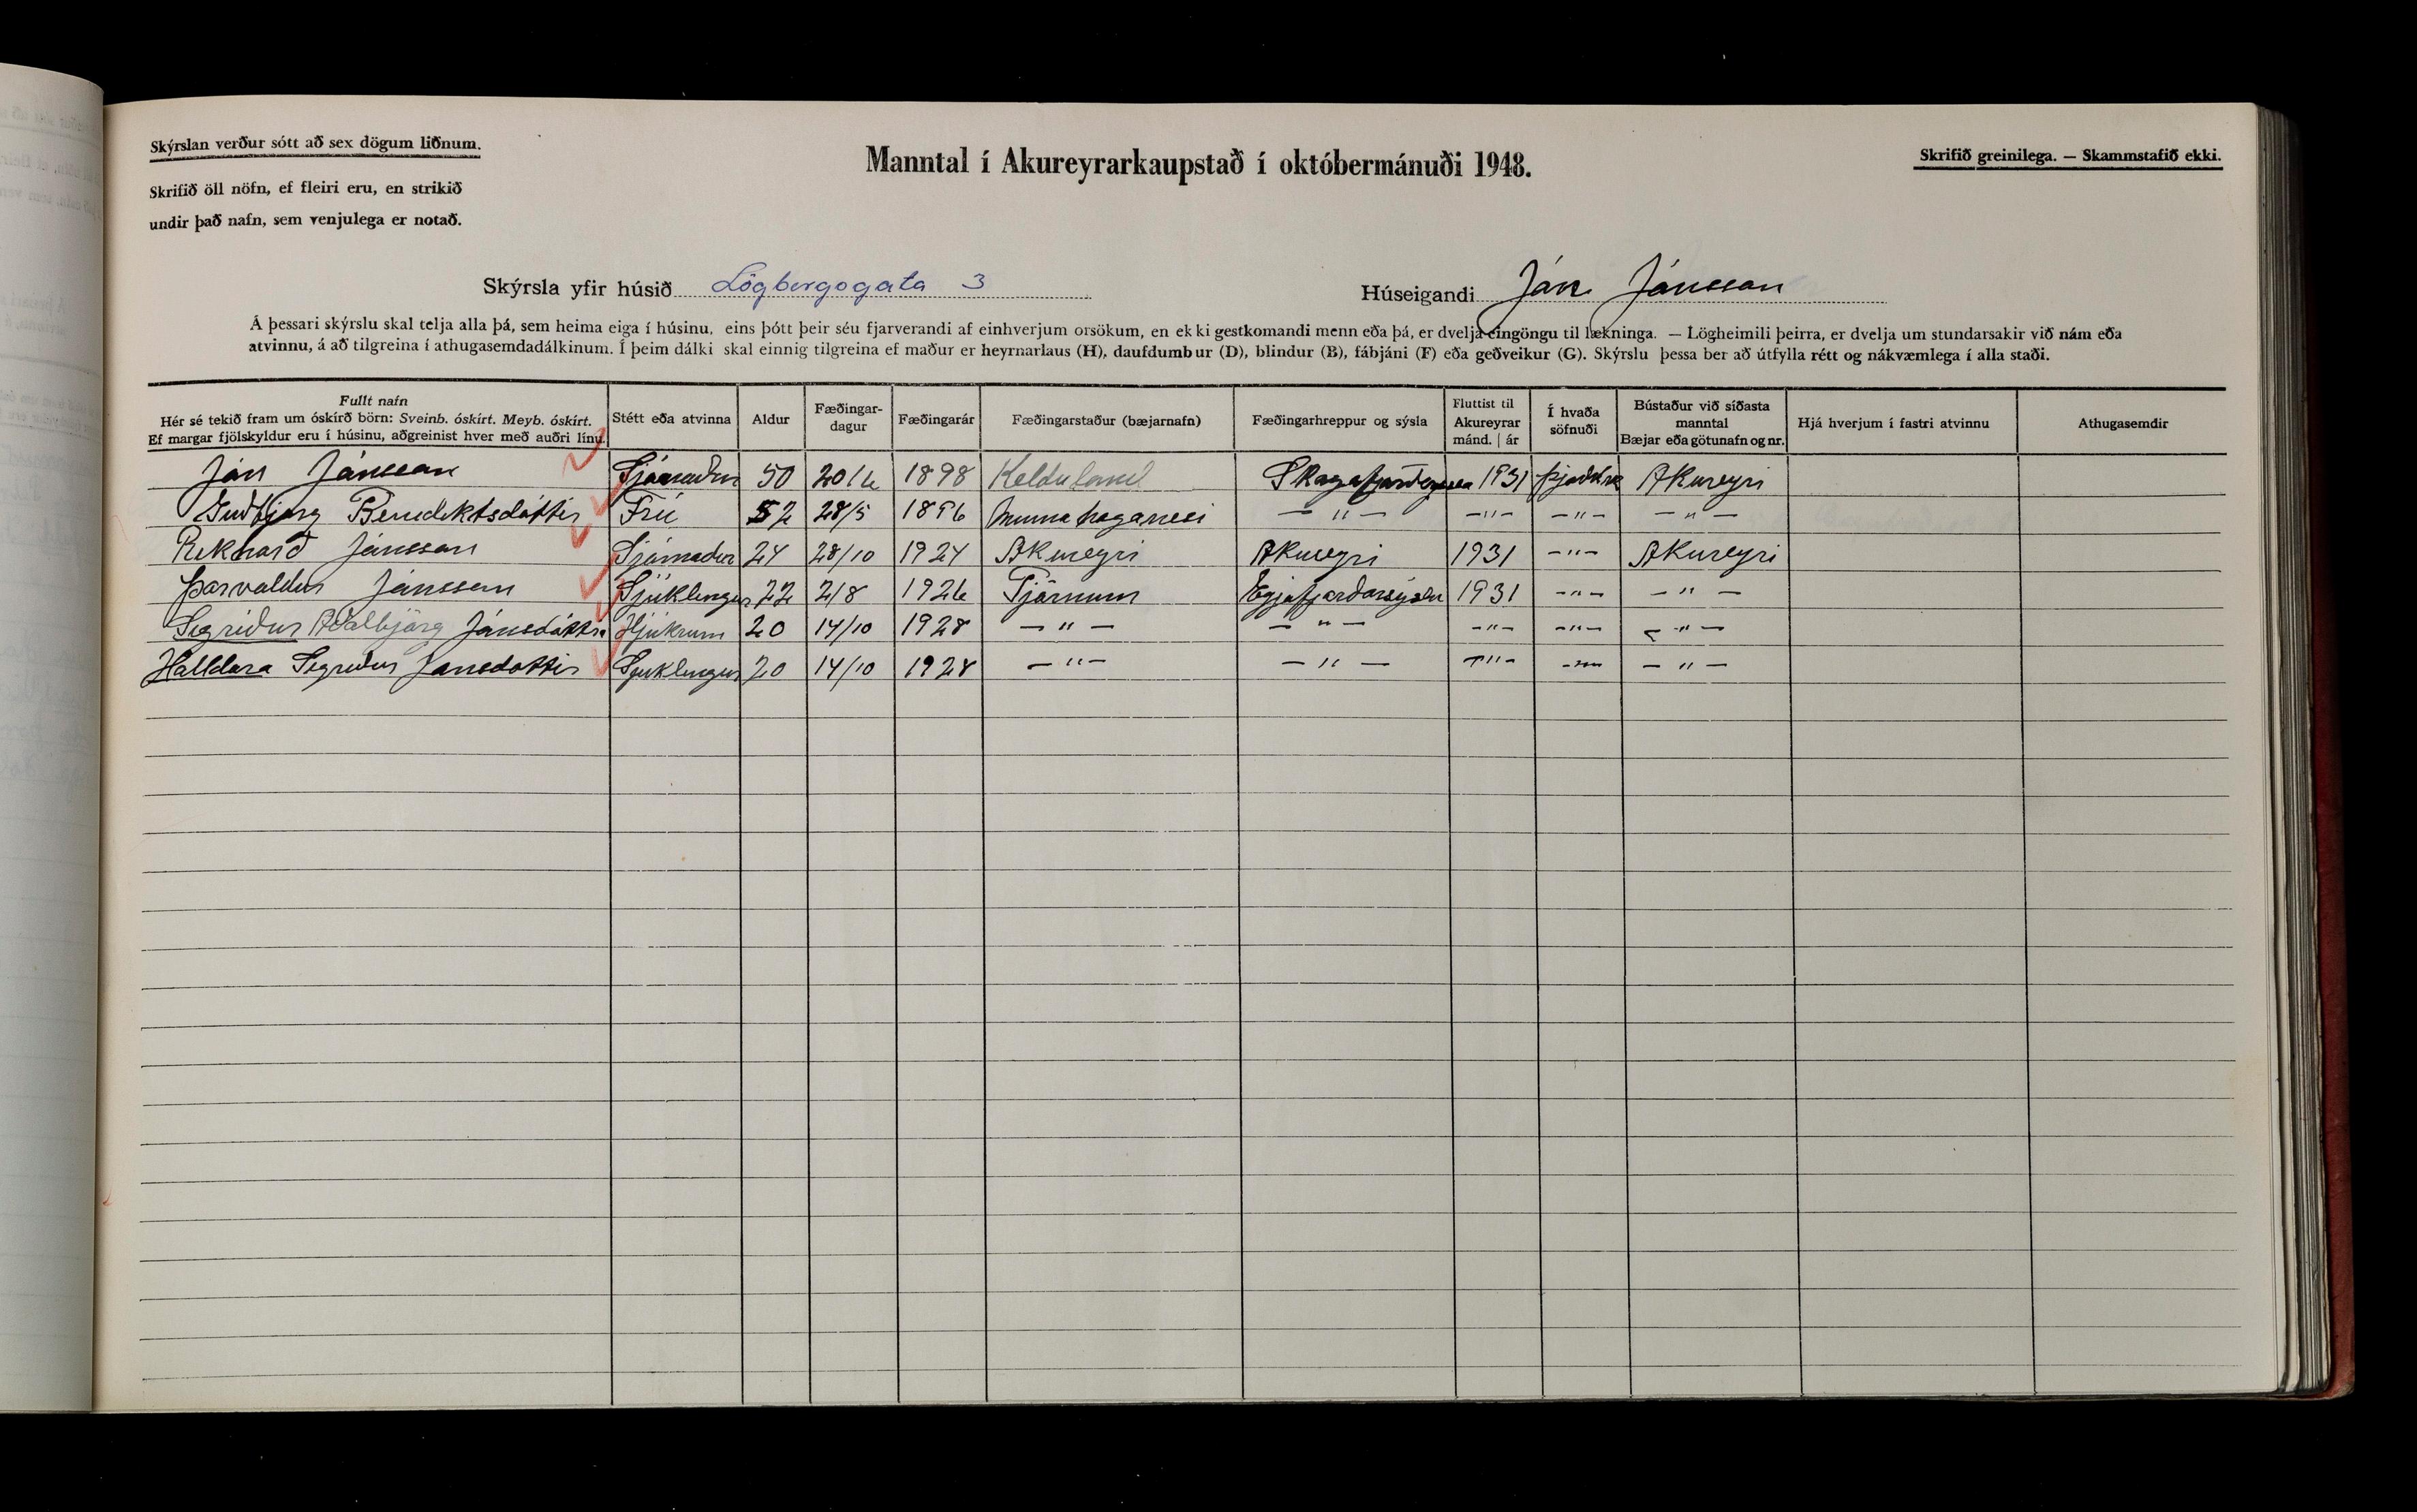 Skýrslan verður sótt að sex dögum liðnum.
Skrifið öll nöfn, ef fleiri eru, en strikið
undir það nafn, sem venjulega er notað.
Manntal í Akureyrarkaupstað í októbermánuði 1948.
Skrifið greinilega. — Skammstafið ekki.
Skýrsla yfir húsið Lögbergsgata 3 Húseigandi Jón Jónsson
Á þessari skýrslu skal telja alla þá, sem heima eiga í húsinu, eins þótt þeir séu fjarverandi af einhverjum orsökum, en ekki gestkomandi menn eða þá, er dvelja eingöngu til lækninga. — Lögheimili þeirra, er dvelja um stundarsakir við nám eða
atvinnu, á að tilgreina í athugasemdadálkinum. Í þeim dálki skal einnig tilgreina ef maður er heyrnarlaus (H), daufdumbur (D), blindur (B), fábjáni (F) eða geðveikur (G). Skýrslu þessa ber að útfylla rétt og nákvæmlega í alla staði.
Fullt nafn
Hér sé tekið fram um óskírð börn: Sveinb. óskírt. Meyb. óskírt.
Ef margar fjölskyldur eru í húsinu, aðgreinist hver með auðri línu.
Stétt eða atvinna
Aldur
Fæðingar-
dagur
Fæðingarár
Fæðingarstaður (bæjarnafn)
Fæðingarhreppur og sýsla
Fluttist til
Akureyrar
mánd. | ár
Í hvaða
söfnuði
Bústaður við síðasta
manntal
Bæjar eða götunafn og nr.
Hjá hverjum í fastri atvinnu
Athugasemdir
Jón Jónsson Sjómaður 50 20/6 1898 Kelduland 1931 Akureyri
Guðbjörg Benediktsdóttir Frú 52 28/5 1896 — " — — " — — " — — " —
Rikharð Jónsson Sjómaður 24 28/10 1924 Akureyri Akureyri 1931 — " — Akureyri
Þorvaldur Jónsson Sjúklingur 22 2/8 1926 Tjörnum Eyjafjarðarsýslu 1931 — " — — " —
Sigríður Aðalbjörg Jónsdóttir Hjúkrun 20 14/10 1928 — " — — " — — " — — " — — " —
Halldóra Sigríður Jónsdóttir Sjúklingur 20 14/10 1928 — " — — " — — " — — " — — " —